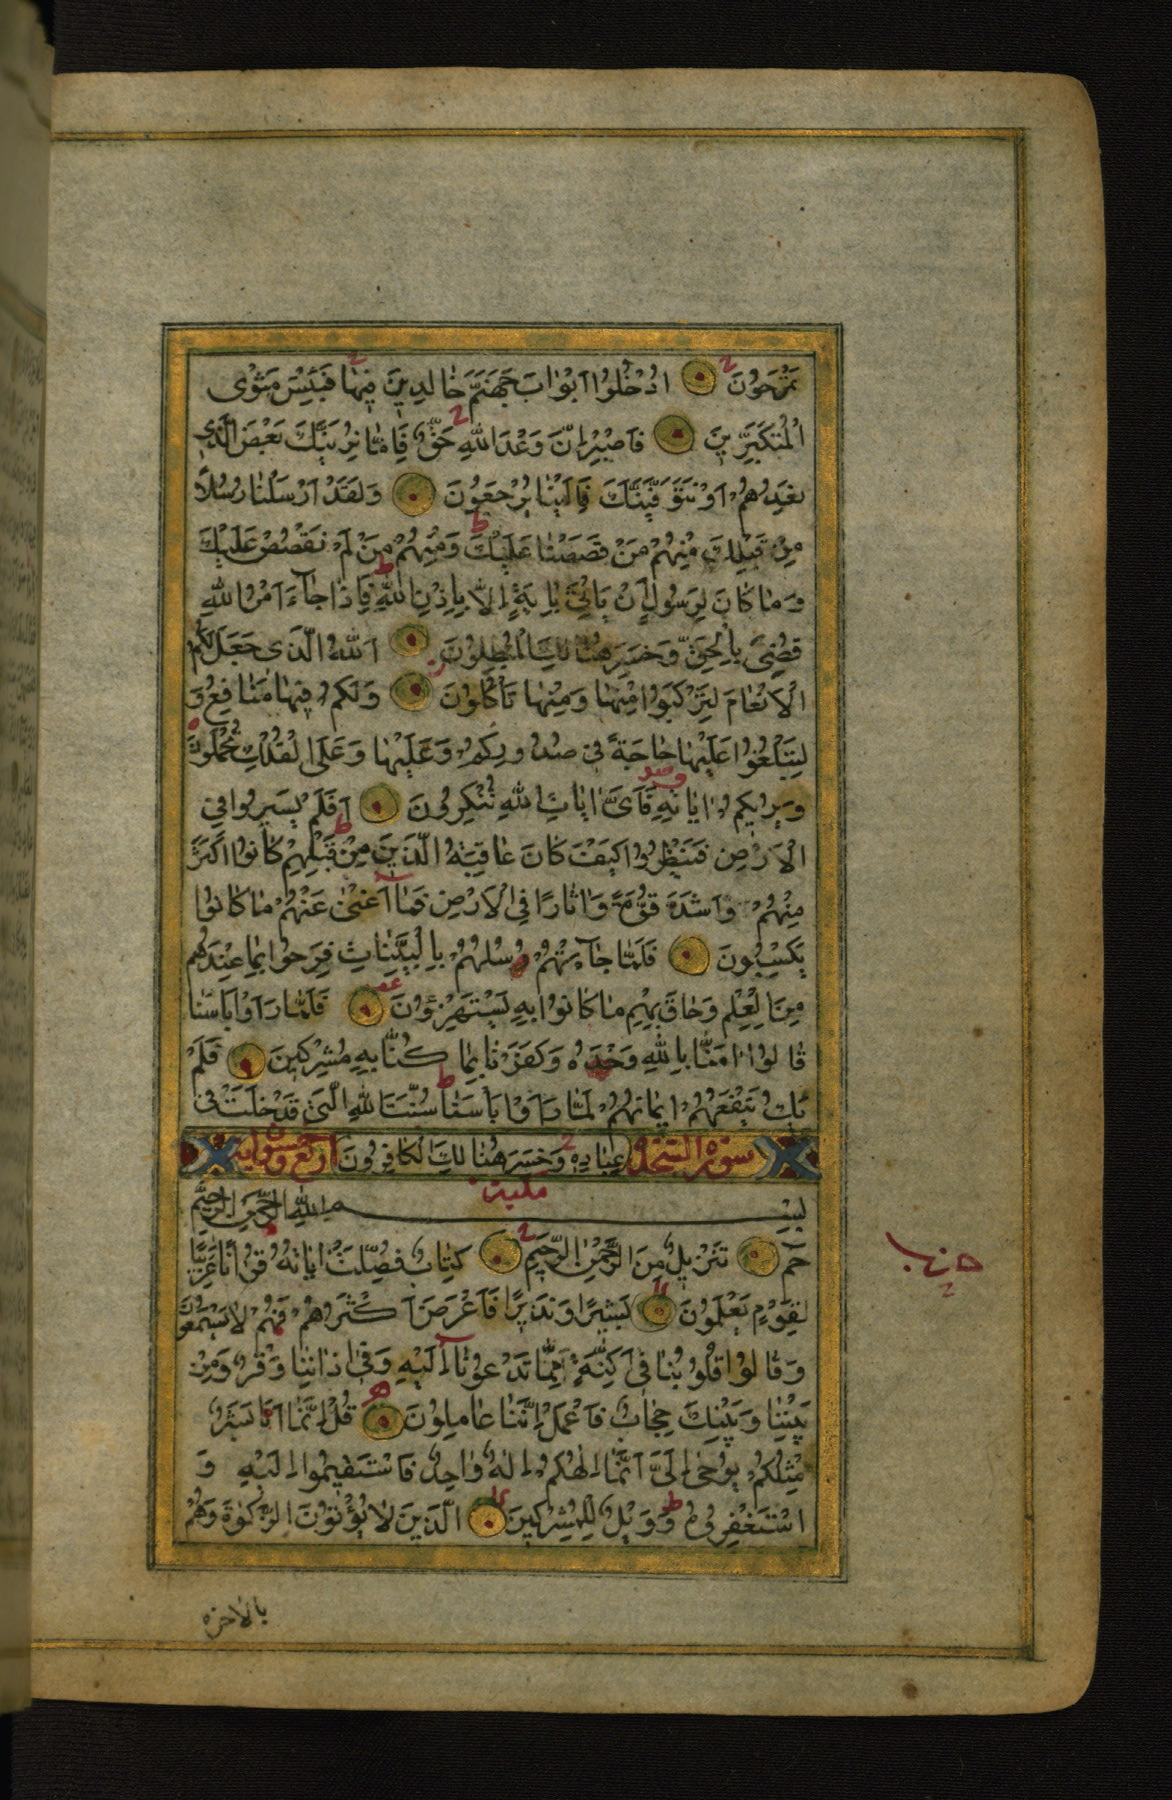 تَمْرَحُونَ ادْخُلُوا اَبْوٰابَ جَهَنَّمَ خٰالِدِينَ فِيهٰا فَبِئْسَ مَثْوَى
الْمُتَكَبِّرِينَ فَاصْبِرْ اِنَّ وَعْدَ اللّٰهِ حَقٌّ فَاِمّٰا نُرِيَنَّكَ بَعْضَ الَّذِي
نَعِدُهُمْ اَوْ نَتَوَفَّيَنَّكَ فَاِلَيْنٰا يُرْجَعُونَ وَلَقَدْ اَرْسَلْنٰا رُسُلاً
مِنْ قَبْلِكَ مِنْهُمْ مَنْ قَصَصْنٰا عَلَيْكَ وَمِنْهُمْ مَنْ لَمْ نَقْصُصْ عَلَيْكَ
وَمٰا كٰانَ لِرَسُولٍ اَنْ يَاْتِيَ بِاٰيَةٍ اِلاّٰ بِاِذْنِ اللّٰهِ فَاِذٰا جٰاۤءَ اَمْرُ اللّٰهِ
قُضِيَ بِالْحَقِّ وَخَسِرَ هُنٰالِكَ الْمُبْطِلُونَ اَللّٰهُ الَّذِى جَعَلَ لَكُمُ
الْاَنْعٰامَ لِتَرْكَبُوا مِنْهٰا وَمِنْهٰا تَاْكُلُونَ وَلَكُمْ فِيهٰا مَنٰافِعُ وَ
لِتَبْلُغُوا عَلَيْهٰا حٰاجَةً فِي صُدُورِكُمْ وَعَلَيْهٰا وَعَلَى الْفُلْكِ تُحْمَلُونَ
وَيُرِيكُمْ اٰيٰاتِهِ فَاَيَّ اٰيٰاتِ اللّٰهِ تُنْكِرُونَ اَفَلَمْ يَسِيرُوا فِي
الْاَرْضِ فَيَنْظُرُوا كَيْفَ كٰانَ عٰاقِبَةُ الَّذِينَ مِنْ قَبْلِهِمْ كٰانُوا اَكْثَرَ
مِنْهُمْ وَاَشَدَّ قُوَّةً وَاٰثٰارًا فِي الْاَرْضِ فَمٰا اَغْنىٰ عَنْهُمْ مٰا كٰانُوا
يَكْسِبُونَ فَلَمّٰا جٰاۤءَتْهُمْ رُسُلُهُمْ بِالْبَيِّنٰاتِ فَرِحُوا بِمٰا عِنْدَهُمْ
مِنَ الْعِلْمِ وَحٰاقَ بِهِمْ مٰا كٰانُوا بِهِ يَسْتَهْزِئُونَ فَلَمّٰا رَاَوْا بَاْسَنٰا
قٰالُوا اٰمَنّٰا بِاللّٰهِ وَحْدَهُ وَكَفَرْنٰا بِمٰا كُنّٰا بِهِ مُشْرِكِينَ فَلَمْ
يَكُ يَنْفَعُهُمْ اِيمٰانُهُمْ لَمّٰا رَاَوْا بَاْسَنٰا سُنَّتَ اللّٰهِ الَّتِي قَدْ خَلَتْ فِي
سورة السجدة عِبٰادِهِ وَخَسِرَ هُنٰالِكَ الْكٰافِرُونَ اربع وخمسون اية
مكية
بِسْمِ اللّٰهِ الرَّحْمٰنِ الرَّحِيمِ
حٰمۤ تَنْزِيلٌ مِنَ الرَّحْمٰنِ الرَّحِيمِ كِتٰابٌ فُصِّلَتْ اٰيٰاتُهُ قُرْاٰنًا عَرَبِيًّا
لِقَوْمٍ يَعْلَمُونَ بَشِيرًا وَنَذِيرًا فَاَعْرَضَ اَكْثَرُهُمْ فَهُمْ لاٰ يَسْمَعُونَ
وَقٰالُوا قُلُوبُنٰا فِي اَكِنَّةٍ مِمّٰا تَدْعُونٰا اِلَيْهِ وَفِي اٰذٰانِنٰا وَقْرٌ وَمِنْ
بَيْنِنٰا وَبَيْنِكَ حِجٰابٌ فَاعْمَلْ اِنَّنٰا عٰامِلُونَ قُلْ اِنَّمٰا اَنَا بَشَرٌ
مِثْلُكُمْ يُوحىٰ اِلَيَّ اَنَّمٰا اِلٰهُكُمْ اِلٰهٌ وٰاحِدٌ فَاسْتَقِيمُوا اِلَيْهِ وَ
اسْتَغْفِرُوهُ وَوَيْلٌ لِلْمُشْرِكِينَ الَّذِينَ لاٰ يُؤْتُونَ الزَّكٰوةَ وَهُمْ
بالاخرة